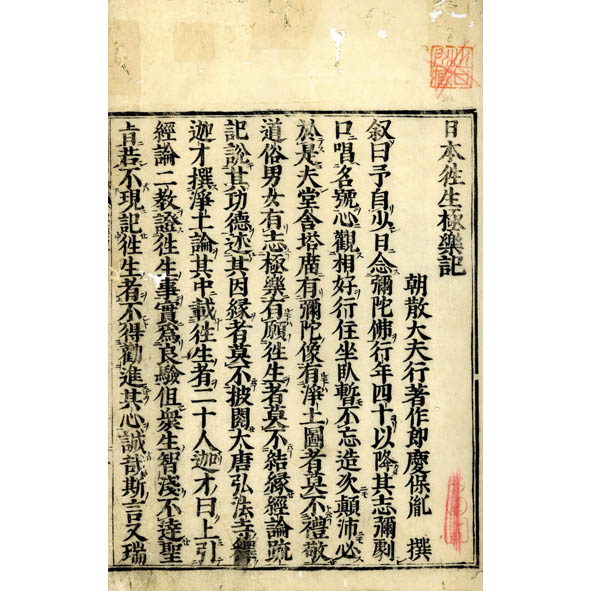 日本往生極樂記
朝散大夫行著作郎慶保胤 撰
叙曰予自少日念彌陀佛行年四十以降其志彌劇
口唱名號心觀相好行住坐臥暫不忘造次顛沛必
於是夫堂舍塔廟有彌陀像有淨土圖者莫不禮敬
道俗男女有志極樂有願往生者莫不結緣經論疏
記說其功德述其因緣者莫不披閱大唐弘法寺釋
迦才撰淨土論其中載往生者二十人迦才曰上引
經論二教證往生事實爲良驗但衆生智淺不達聖
旨若不現記往生者不得勸進其心誠哉斯言又瑞